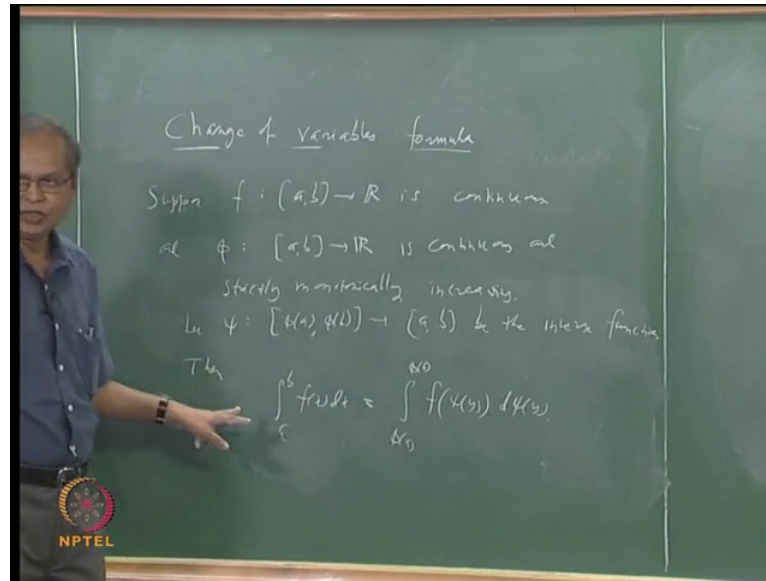 Change of variables formula
Suppose f : [a, b] → ℝ is continuous
and φ : [a, b] → ℝ is continuous and
strictly monotonically increasing.
Let ψ : [φ(a), φ(b)] → [a, b] be the inverse function
Then
∫_a^b f(x) dx = ∫_{φ(a)}^{φ(b)} f(ψ(y)) dψ(y).
NPTEL